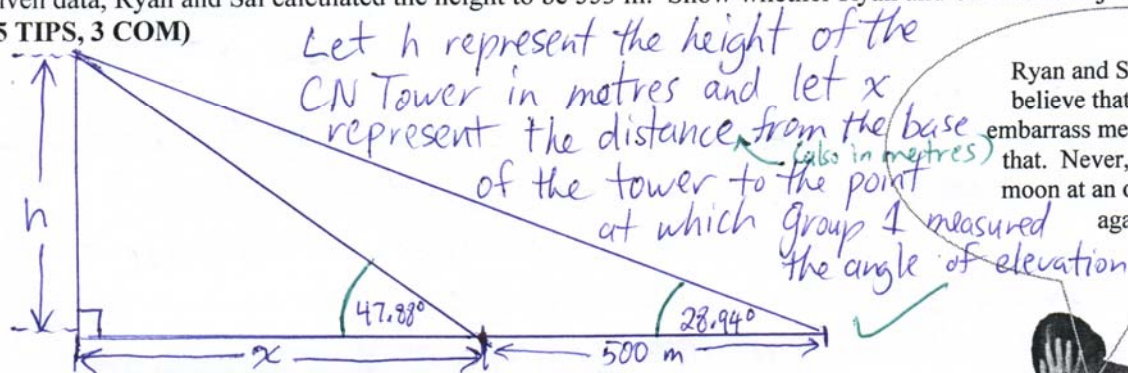 given data, Ryan and Sal calculated the height to be 553 m. Show whether Ryan and
5 TIPS, 3 COM)
Let h represent the height of the
CN Tower in metres and let x
represent the distance from the base
(also in metres)
of the tower to the point
at which group 1 measured
the angle of elevation
Ryan and S
believe that
embarrass me
that. Never,
moon at an o
aga
h
47.88°
28.94°
x
500 m